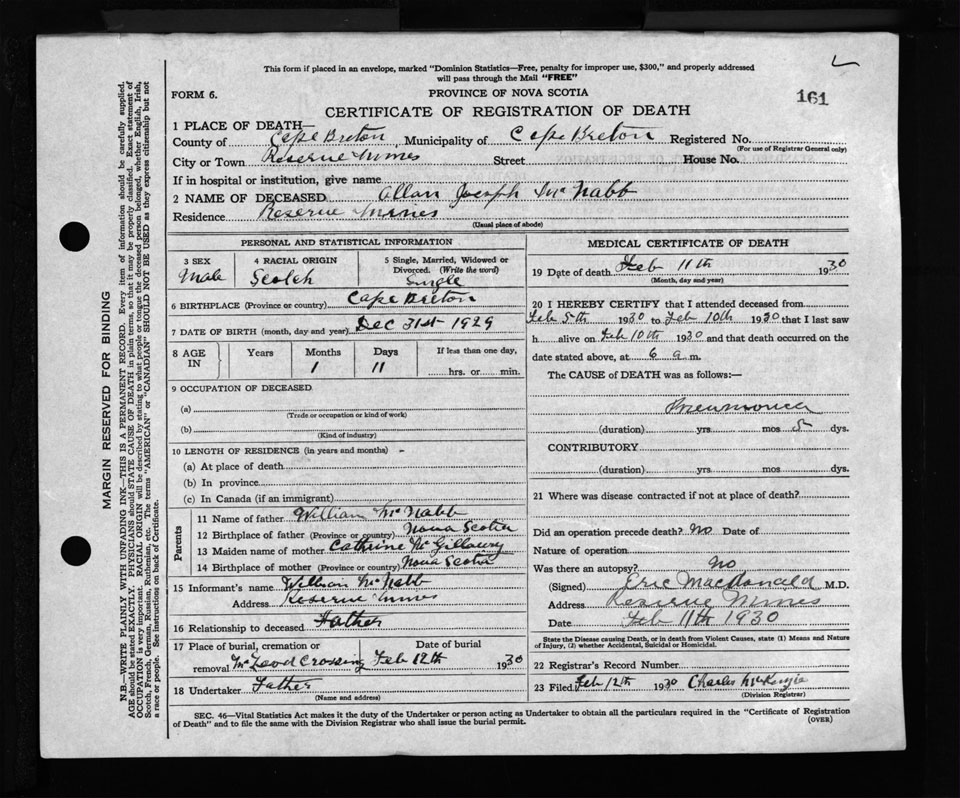 This form if placed in an envelope, marked "Dominion Statistics—Free, penalty for improper use, $300," and properly addressed
will pass through the Mail "FREE"
161
FORM 6.
PROVINCE OF NOVA SCOTIA
CERTIFICATE OF REGISTRATION OF DEATH
1 PLACE OF DEATH—
County of Cape Breton, Municipality of Cape Breton Registered No.
(For use of Registrar General only)
City or Town Reserve Mines Street House No.
If in hospital or institution, give name
2 NAME OF DECEASED Allan Joseph McNabb
Residence Reserve Mines
(Usual place of abode)
PERSONAL AND STATISTICAL INFORMATION
3 SEX Male
4 RACIAL ORIGIN Scotch
5 Single, Married, Widowed or Divorced. (Write the word) Single
6 BIRTHPLACE (Province or country) Cape Breton
7 DATE OF BIRTH (month, day and year) Dec 31st 1929
8 AGE IN Years Months 1 Days 11 If less than one day, hrs. or min.
9 OCCUPATION OF DECEASED
(a)
(Trade or occupation or kind of work)
(b)
(Kind of industry)
10 LENGTH OF RESIDENCE (in years and months) -
(a) At place of death
(b) In province
(c) In Canada (if an immigrant)
Parents
11 Name of father William McNabb
12 Birthplace of father (Province or country) Nova Scotia
13 Maiden name of mother Cathrine
14 Birthplace of mother (Province or country) Nova Scotia
15 Informant's name William McNabb
Address Reserve Mines
16 Relationship to deceased Father
17 Place of burial, cremation or removal Crossing Date of burial Feb 12th 1930
18 Undertaker Father
(Name and address)
MEDICAL CERTIFICATE OF DEATH
19 Date of death Feb 11th 1930
(Month, day and year)
20 I HEREBY CERTIFY that I attended deceased from
Feb 5th 1930 to Feb 10th 1930 that I last saw
h alive on Feb 10th 1930 and that death occurred on the
date stated above, at 6 a.m.
The CAUSE of DEATH was as follows:—
Pneumonia
(duration) yrs mos 5 dys.
CONTRIBUTORY
(duration) yrs. mos dys.
21 Where was disease contracted if not at place of death?
Did an operation precede death? No Date of
Nature of operation
Was there an autopsy? No
(Signed) Eric MacDonald M.D.
Address Reserve Mines
Date Feb 11th 1930
State the Disease causing Death, or in death from Violent Causes, state (1) Means and Nature
of Injury, (2) whether Accidental, Suicidal or Homicidal.
22 Registrar's Record Number
23 Filed Feb 12th 1930 Charles McKenzie
(Division Registrar)
SEC. 46—Vital Statistics Act makes it the duty of the Undertaker or person acting as Undertaker to obtain all the particulars required in the "Certificate of Registration
of Death" and to file the same with the Division Registrar who shall issue the burial permit.
(OVER)
MARGIN RESERVED FOR BINDING
N.B.—WRITE PLAINLY WITH UNFADING INK—THIS IS A PERMANENT RECORD. Every item of information should be carefully supplied.
AGE should be stated EXACTLY. PHYSICIANS should STATE CAUSE OF DEATH in plain terms, so that it may be properly classified. Exact statement of
OCCUPATION is very important. RACIAL ORIGIN will be described by stating to what people or tongue the deceased person belonged, whether English, Irish,
Scotch, French, German, Russian, Ruthenian, etc. The terms "AMERICAN" or "CANADIAN" SHOULD NOT BE USED as they express citizenship but not
a race or people. See instructions on back of Certificate.